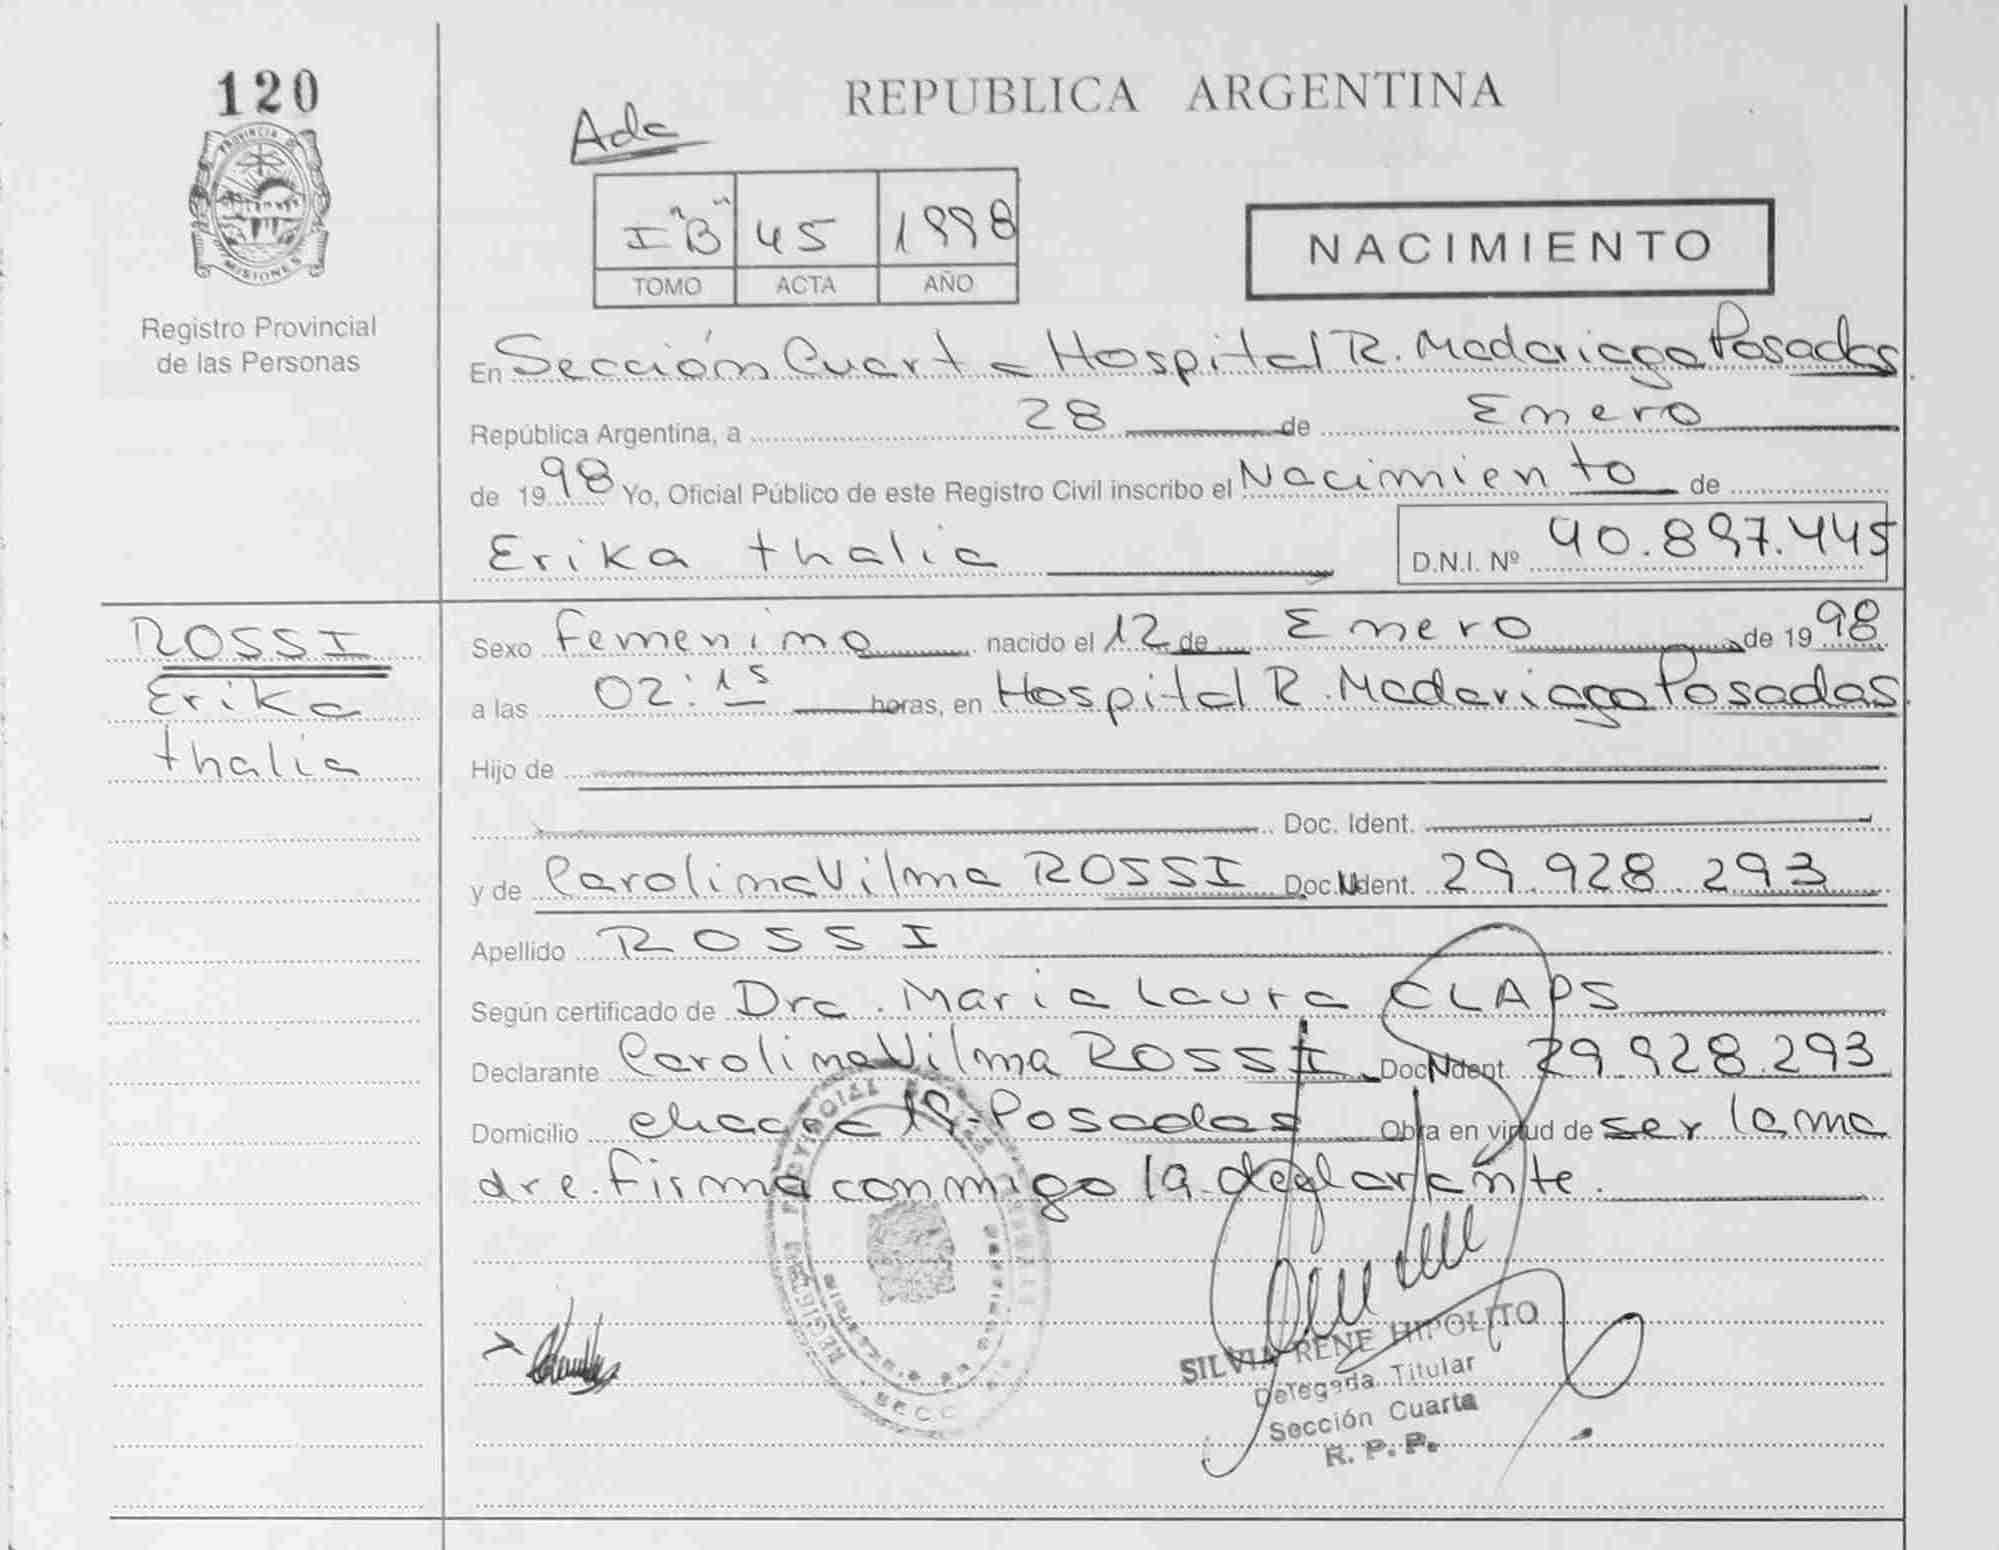 120
REPUBLICA ARGENTINA
Ada
PROVINCIA DE
MISIONES
I "B" 45 1998
TOMO ACTA AÑO
NACIMIENTO
Registro Provincial
de las Personas
En Sección Cuarta Hospital R. Madariaga Posadas
República Argentina, a 28 de Enero
de 1998 Yo, Oficial Público de este Registro Civil inscribo el Nacimiento de
Erika thalia D.N.I. Nº 40.897.445
ROSSI
Erika
thalia
Sexo femenino nacido el 12 de Enero de 1998
a las 02:15 horas, en Hospital R. Madariaga Posadas.
Hijo de
Doc. Ident.
y de Carolina Vilma ROSSI Doc. Ident. 29.928.293
Apellido ROSSI
Según certificado de Dra. Maria Laura CLAPS
Declarante Carolina Vilma ROSSI Doc. Ident. 29.928.293
Domicilio chacra 19-Posadas Obra en virtud de ser la ma
dre. firma conmigo la declarante.
REGISTRO PROVINCIAL
SECC
SILVIA RENE HIPOLITO
Delegada Titular
Sección Cuarta
R. P. P.